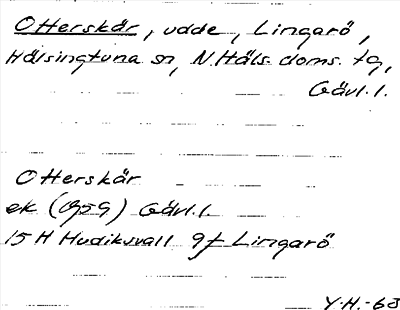 Otterskär, udde, Lingarö,
Hälsingtuna sn, N.Häls. doms. tg,
Gävl.l.
Otterskär
ek (1959) Gävl.l.
15 H Hudiksvall 9f Lingarö
Y.H.-63